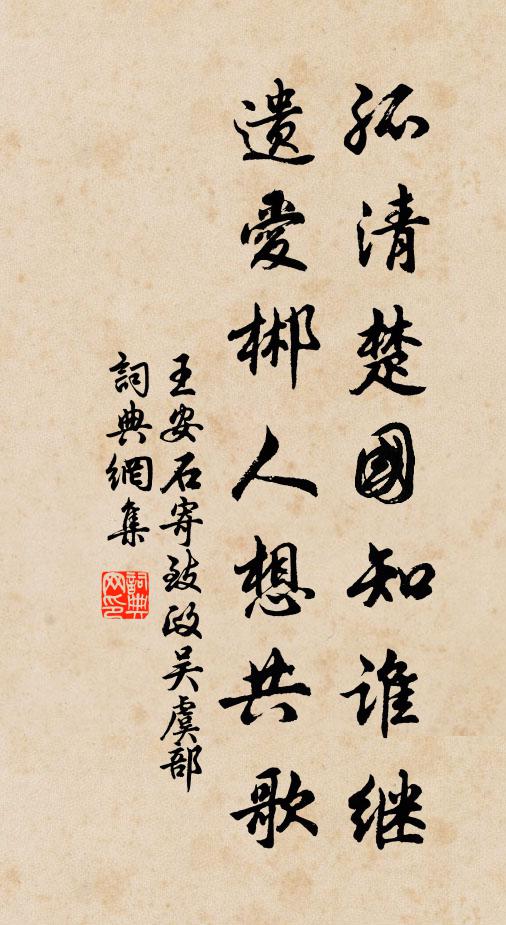 孤清楚國知谁继
遺愛郴人想共歌
王安石寄致政吴虞部
詞典網集
詞典網印